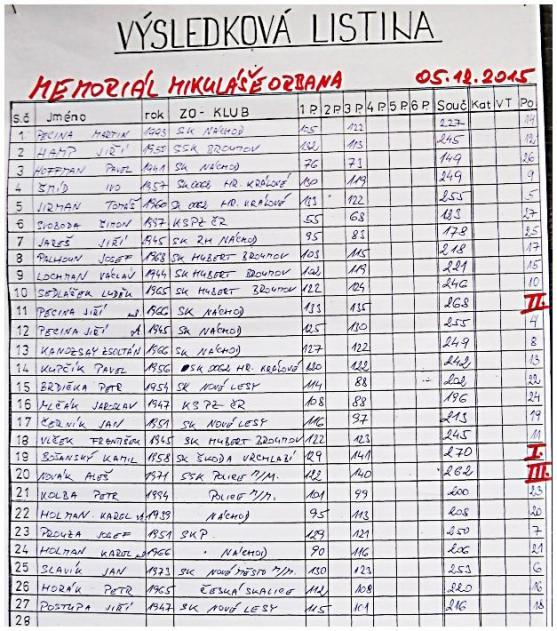 VÝSLEDKOVÁ LISTINA
MEMORIÁL MIKULÁŠE ORBANA 05.12.2015
S.č Jméno rok ZO- KLUB 1 P. 2 P 3 P 4 P. 5 P. 6 P Souč Kat VT Po.
1 PECINA MARTIN SK NÁCHOD 105 122 227 14
2 HAMP JIŘÍ SSK BROUMOV 132 113 245 12
3 HOFFMAN PAVEL 1941 SK NÁCHOD 76 73 149 26
4 ŠMÍD IVO 1957 HR. KRÁLOVÉ 130 119 249 9
5 JIRMAN TOMÁŠ 1960 HR. KRÁLOVÉ 133 122 255 5
6 SVOBODA ŠIMON 1997 KSPZ ČR 55 68 27
7 JAREŠ JIŘÍ 1945 SK RH NÁCHOD 95 83 178 25
8 PALHOUN JOSEF 1968 SK HUBERT BROUMOV 103 115 218 17
9 LOCHMAN VÁCLAV 1944 SK HUBERT BROUMOV 102 119 221 15
10 SEDLÁČEK LUDĚK 1965 SK HUBERT BROUMOV 122 124 246 10
11 PECINA JIŘÍ 1966 SK NÁCHOD 133 135 268 II.
12 PECINA JIŘÍ 1945 SK NÁCHOD 125 130 255 4
13 ZSOLTÁN 1966 SK NÁCHOD 127 122 249 8
14 KUPČÍK PAVEL 1956 HR. KRÁLOVÉ 120 122 242 13
15 BRDIČKA PETR 1954 SK NOVÉ LESY 114 88 202 22
16 MLČÁK JAROSLAV 1947 KSPZ ČR 108 88 196 24
17 ČERNÍK JAN 1951 SK NOVÉ LESY 116 97 213 19
18 VLČEK FRANTIŠEK 1945 SK HUBERT BROUMOV 122 123 245 11
19 BOŠANSKÝ KAMIL 1958 SK ŠKODA VRCHLABÍ 129 141 270 I.
20 NOVÁK ALEŠ 1971 SSK POLICE N/M. 122 140 262 III.
21 KOLBA PETR 1994 POLICE N/M. 101 99 200 23
22 HOLMAN KAREL 1939 NÁCHOD 95 113 208 20
23 PROUZA JOSEF 1951 SKP. 129 121 250 7
24 HOLMAN KAREL 1966 NÁCHOD 90 116 206 21
25 SLAVÍK JAN 1973 SK NOVÉ MĚSTO N/M. 130 123 253 6
26 HORÁK PETR 1965 ČESKÁ SKALICE 112 108 220 16
27 POSTUPA JIŘÍ 1947 SK NOVÉ LESY 115 101 216 18
28